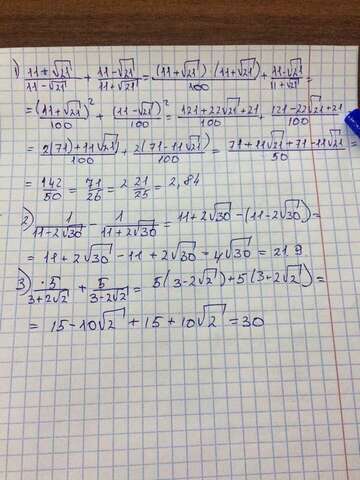 1) \frac{11+\sqrt{21}}{11-\sqrt{21}} + \frac{11-\sqrt{21}}{11+\sqrt{21}} = \frac{(11+\sqrt{21})(11+\sqrt{21})}{100} + \frac{11-\sqrt{21}}{11+\sqrt{21}} =
= \frac{(11+\sqrt{21})^2}{100} + \frac{(11-\sqrt{21})^2}{100} = \frac{121+22\sqrt{21}+21}{100} + \frac{121-22\sqrt{21}+21}{100}
= \frac{2(71)+11\sqrt{21})}{100} + \frac{2(71-11\sqrt{21})}{100} = \frac{71+11\sqrt{21}+71-11\sqrt{21}}{50} =
= \frac{142}{50} = \frac{71}{26} = 2\frac{21}{25} = 2,84
2) \frac{1}{11-2\sqrt{30}} - \frac{1}{11+2\sqrt{30}} = 11+2\sqrt{30}-(11-2\sqrt{30}) =
= 11+2\sqrt{30}-11+2\sqrt{30}=4\sqrt{30}=21.9.
3) \frac{5}{3+2\sqrt{2}} + \frac{5}{3-2\sqrt{2}} = 5(3-2\sqrt{2})+5(3+2\sqrt{2}) =
= 15-10\sqrt{2}+15+10\sqrt{2}=30